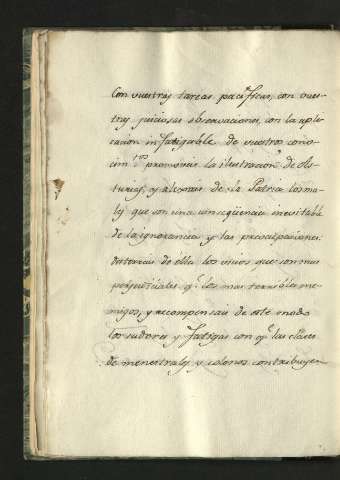 Con vuestras tareas pacificas, con vues-
tras juiciosas observaciones, con la apli-
cacion infatigable de vuestros cono-
cim.tos promoveis la ilustracion de As-
turias, y alejais de la Patria los ma-
les que son una conseqüencia inevitable
de la ignorancia y las preocupaciones:
desterrais de ella los vicios que son mas
perjudiciales q.e los mas terribles ene-
migos, y recompensais de este modo
los sudores y fatigas con q.e las clases
de menestrales, y colonos contribuyen